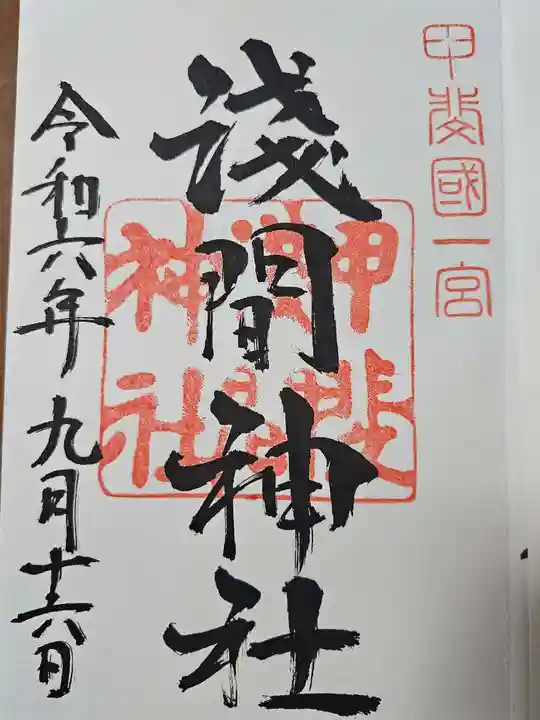 甲斐國一宮
淺間神社
甲斐
淺間
神社
令和六年 九月十六日